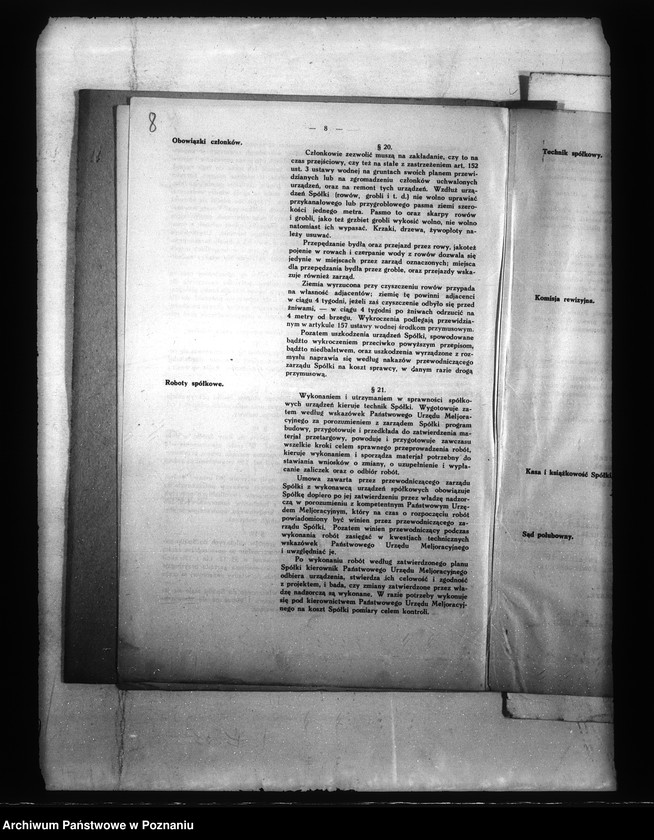 8
— 8 —
Obowiązki członków.
§ 20.
Członkowie zezwolić muszą na zakładanie, czy to na
czas przejściowy, czy też na stałe z zastrzeżeniem art. 152
ust. 3 ustawy wodnej na gruntach swoich planem przewi-
dzianych lub na zgromadzeniu członków uchwalonych
urządzeń, oraz na remont tych urządzeń. Wzdłuż urzą-
dzeń Spółki (rowów, grobli i t. d.) nie wolno uprawiać
przykanałowego lub przygroblowego pasma ziemi szero-
kości jednego metra. Pasmo to oraz skarpy rowów
i grobli, jako też grzbiet grobli wykosić wolno, nie wolno
natomiast ich wypasać. Krzaki, drzewa, żywopłoty na-
leży usuwać.
Przepędzanie bydła oraz przejazd przez rowy, jakoteż
pojenie w rowach i czerpanie wody z rowów dozwala się
jedynie w miejscach przez zarząd oznaczonych; miejsca
dla przepędzania bydła przez groble, oraz przejazdy wska-
zuje również zarząd.
Ziemia wyrzucona przy czyszczeniu rowów przypada
na własność adjacentów; ziemię tę powinni adjacenci
w ciągu 4 tygodni, jeżeli zaś czyszczenie odbyło się przed
żniwami, — w ciągu 4 tygodni po żniwach odrzucić na
4 metry od brzegu. Wykroczenia podlegają przewidzia-
nym w artykule 157 ustawy wodnej środkom przymusowym.
Pozatem uszkodzenia urządzeń Spółki, spowodowane
bądźto wykroczeniem przeciwko powyższym przepisom,
bądźto niedbalstwem, oraz uszkodzenia wyrządzone z roz-
mysłu naprawia się według nakazów przewodniczącego
zarządu Spółki na koszt sprawcy, w danym razie drogą
przymusową.
Roboty spółkowe.
§ 21.
Wykonaniem i utrzymaniem w sprawności spółko-
wych urządzeń kieruje technik Spółki. Wygotowuje za-
tem według wskazówek Państwowego Urzędu Meljora-
cyjnego za porozumieniem z zarządem Spółki program
budowy, przygotowuje i przedkłada do zatwierdzenia ma-
terjał przetargowy, powoduje i przygotowuje zawczasu
wszelkie kroki celem sprawnego przeprowadzenia robót,
kieruje wykonaniem i sporządza materjał potrzebny do
stawiania wniosków o zmiany, o uzupełnienie i wypła-
canie zaliczek oraz o odbiór robót.
Umowa zawarta przez przewodniczącego zarządu
Spółki z wykonawcą urządzeń spółkowych obowiązuje
Spółkę dopiero po jej zatwierdzeniu przez władzę nadzor-
czą w porozumieniu z kompetentnym Państwowym Urzę-
dem Meljoracyjnym, który na czas o rozpoczęciu robót
powiadomiony być winien przez przewodniczącego za-
rządu Spółki. Pozatem winien przewodniczący podczas
wykonania robót zasięgać w kwestjach technicznych
wskazówek Państwowego Urzędu Meljoracyjnego
i uwzględniać je.
Po wykonaniu robót według zatwierdzonego planu
Spółki kierownik Państwowego Urzędu Meljoracyjnego
odbiera urządzenia, stwierdza ich celowość i zgodność
z projektem, i bada, czy zmiany zatwierdzone przez wła-
dzę nadzorczą są wykonane. W razie potrzeby wykonuje
się pod kierownictwem Państwowego Urzędu Meljoracyj-
nego na koszt Spółki pomiary celem kontroli.
Technik spółkowy.
Komisja rewizyjna.
Kasa i książkowość Spółki
Sąd polubowny.
Archiwum Państwowe w Poznaniu